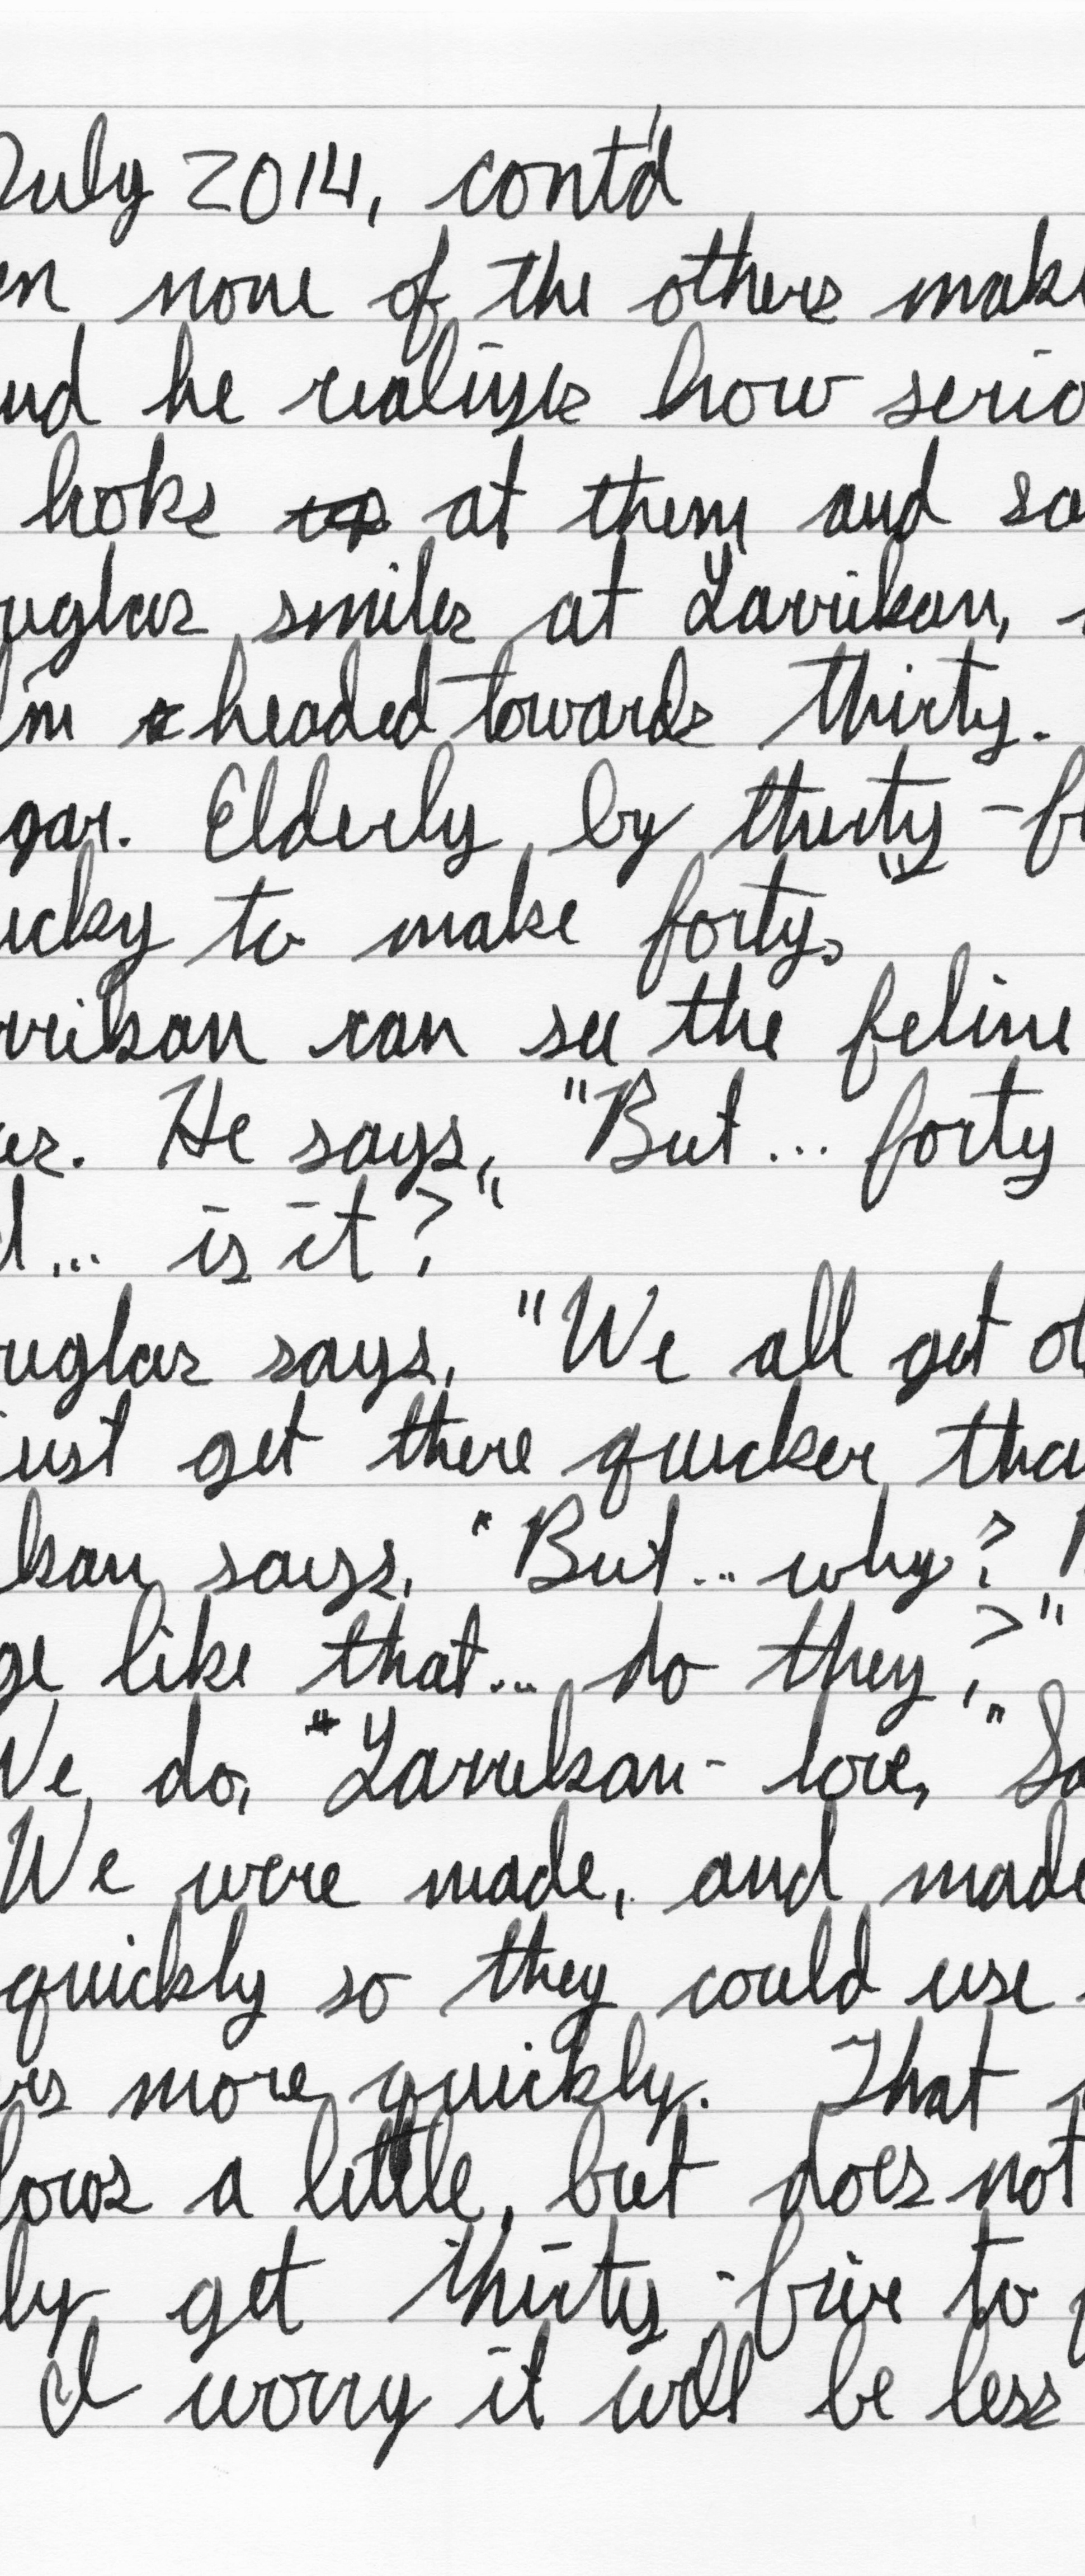 July 2014, cont'd
en none of the others make
nd he realises how serio
looks up at them and sa
uglas smiles at Larrikan,
I'm headed towards thirty.
gar. Elderly by thirty-fi
ucky to make forty."
rrikan can see the feline
er. He says, "But... forty
d... is it?"
uglas says, "We all get ol
just get there quicker tha
kan says, "But... why?
ge like that... do they?"
We do, Larrikan-love," Sa
We were made, and made
quickly so they could use
rs more quickly. That
lows a little, but does not
ly get thirty-five to f
I worry it will be less